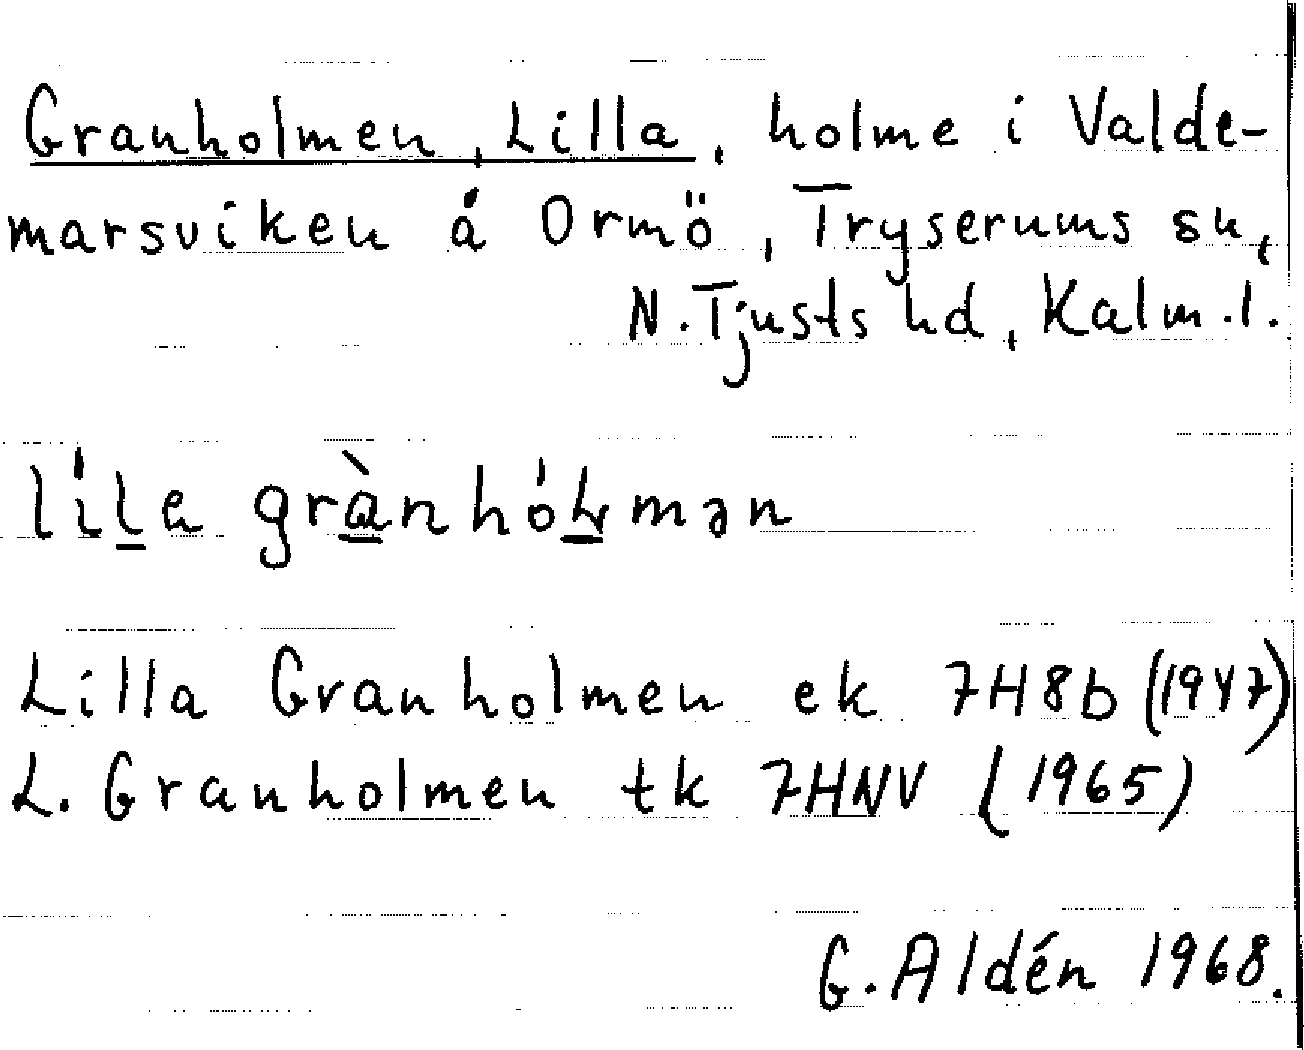 Granholmen, Lilla, holme i Valde-
marsviken å Ormö, Tryserums sn,
N. Tjusts hd, Kalm. l.
Lilla Granholmen ek 7H8b (1947)
L. Granholmen tk 7HNV (1965)
G. Aldén 1968.